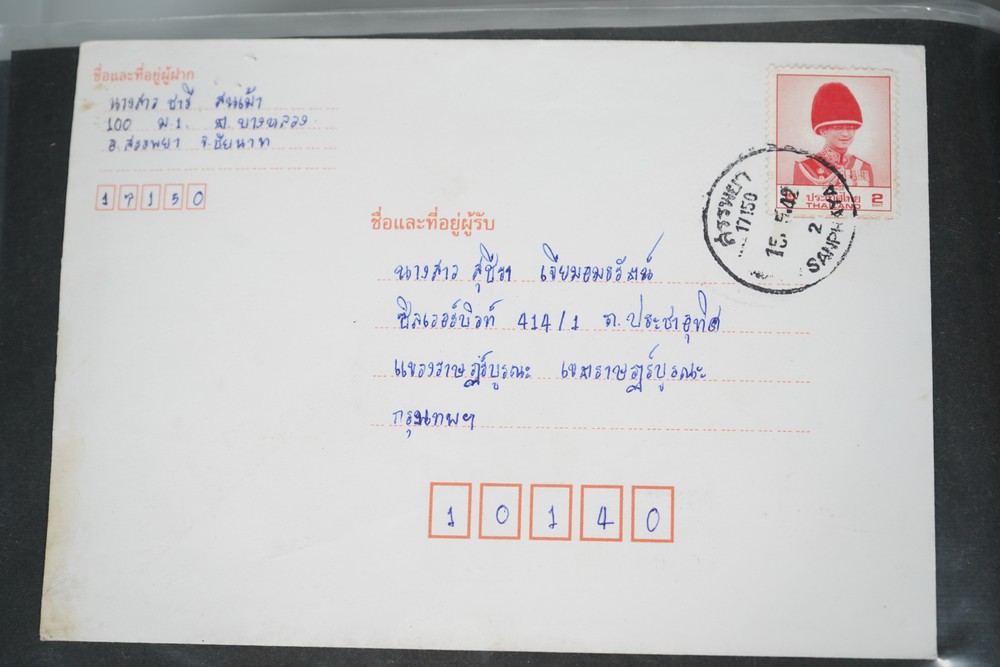 ชื่อและที่อยู่ผู้ฝาก
นางสาว ชารี สนเผ้า
100 ม.1. ต.บางหลวง
อ.สรรพยา จ.ชัยนาท
17150
ประเทศไทย 2
THAILAND BAHT
สรรพยา
17150
2
SANPHAYA
ชื่อและที่อยู่ผู้รับ
นางสาว สุชีรา เจียมอมรรัตน์
ซิลเวอร์บิวท์ 414/1 ถ.ประชาอุทิศ
แขวงราษฎร์บูรณะ เขตราษฎร์บูรณะ
กรุงเทพฯ
10140